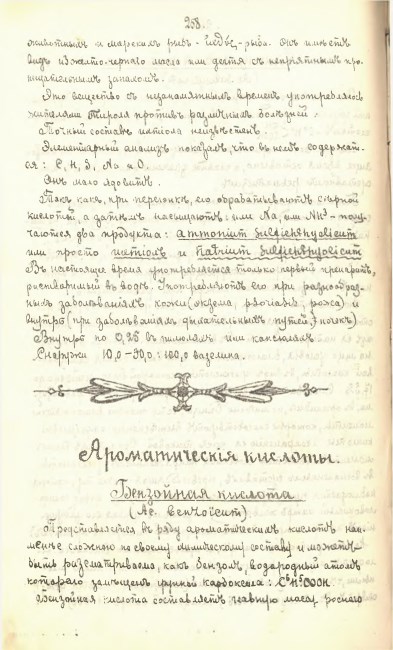 258.
животныхъ и морскихъ рыбъ - ιχθύς - рыба. Онъ имѣетъ
видъ изжелто-чернаго масла или дегтя съ непріятнымъ про-
ницательнымъ запахомъ.
Это вещество съ незапамятныхъ временъ употреблялось
жителями Тироля противъ различныхъ болѣзней.
Точный составъ ихтіола неизвѣстенъ.
Элементарный анализъ показалъ, что въ немъ содержат-
ся: C, H, S, Na и O.
Онъ мало ядовитъ.
Такъ какъ, при перегонкѣ, его обрабатываютъ сѣрной
кислотой, а затѣмъ насыщаютъ: или Na, или NH³ - полу-
чаются два продукта: ammonium sulfoichthyolicum
или просто ихтіолъ и Natrium sulfoichthyolicum
Въ настоящее время употребляется только первый препаратъ,
растворимый въ водѣ. Употребляютъ его при разнообраз-
ныхъ заболѣваніяхъ кожи (экзема, psoriasis, рожа) и
внутрь (при заболѣваніяхъ дыхательныхъ путей, и почекъ)
Внутрь по 0,25 въ пилюляхъ или капсюляхъ.
Снаружи 10,0 - 50,0 : 100,0 вазелина.
Ароматическія кислоты.
Бензойная кислота
(Ac. Benzoicum)
Представляется въ ряду ароматическихъ кислотъ наи-
менѣе сложною по своему химическому составу и можетъ
быть разсматриваема, какъ бензолъ, водородный атомъ
котораго замѣщенъ группой карбоксила: C⁶H⁵COOH.
Бензойная кислота составляетъ главную массу роснаго